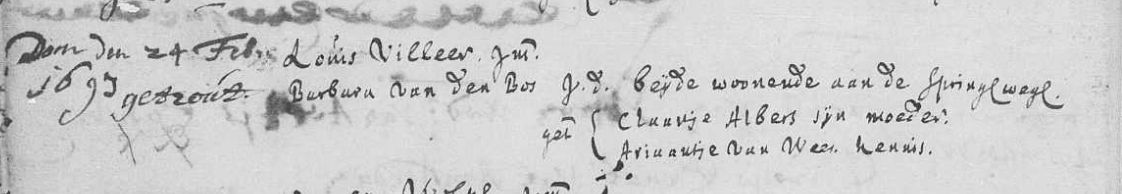 Dom den 24 Feb. Louis Villeer. Jm.
1693 getrout. Barbara van den Bos J.d. beijde woonende aan de Springwegh.
get Claartje Albers sijn moeder.
Ariaantje van Wees. kennis.